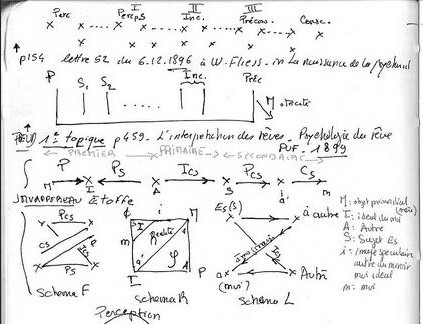 I II III
Perc PercpS Inc. Précons. Consc.
p154 lettre 52 du 6.12.1896 à W. Fliess. in La naissance de la psychanal
P S1 S2 Inc. Préc
M.
1re topique p459. L'interprétation des rêves. Psychologie du rêve
PUF. 1899
PREMIER PRIMAIRE SECONDAIRE
P PS ICS PCS CS
M I A S i a' m
ETOFFE
PCS CS P PS
Schema F
φ i M
S I Réalité
m
a' φ A
I P
Schema R
Es (S) à autre
a (moi) Autre
Schema L
M: objet primordial
(mère)
I: idéal du moi
A: Autre
S: Sujet Es
i: image speculaire
autre du miroir
moi idéal
m: moi
Perception